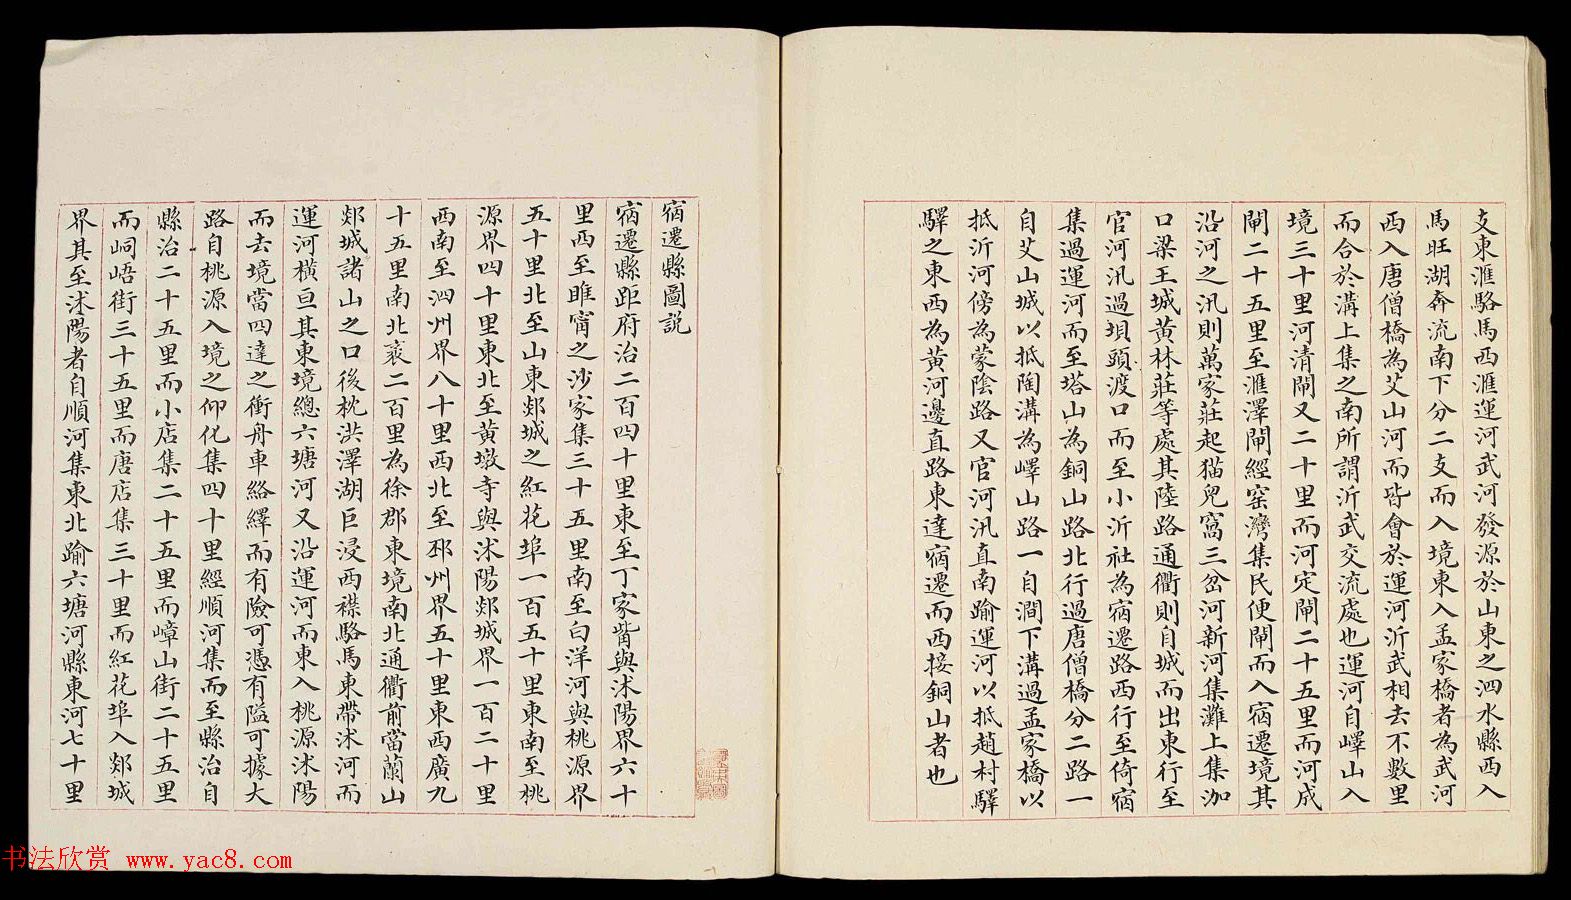 支東滙駱馬西滙運河武河發源於山東之泗水縣西入
馬旺湖奔流南下分二支而入境東入孟家橋者為武河
西入唐僧橋為艾山河而皆會於運河沂武相去不數里
而合於溝上集之南所謂沂武交流處也運河自嶧山入
境三十里河清閘又二十里而河定閘二十五里而河成
閘二十五里至滙澤閘經窑灣集民便閘而入宿遷境其
沿河之汛則萬家莊起猫兒窩三岔河新河集灘上集泇
口梁王城黃林莊等處其陸路通衢則自城而出東行至
官河汛過垻頭渡口而至小沂社為宿遷路西行至倚宿
集過運河而至塔山為銅山路北行過唐僧橋分二路一
自艾山城以抵陶溝為嶧山路一自澗下溝過孟家橋以
抵沂河傍為蒙陰路又官河汛直南踰運河以抵趙村驛
驛之東西為黃河邊直路東達宿遷而西接銅山者也
宿遷縣圖説
宿遷縣距府治二百四十里東至丁家觜與沭陽界六十
里西至睢甯之沙家集三十五里南至白洋河與桃源界
五十里北至山東郯城之紅花埠一百五十里東南至桃
源界四十里東北至黃墩寺與沭陽郯城界一百二十里
西南至泗州界八十里西北至邳州界五十里東西廣九
十五里南北袤二百里為徐郡東境南北通衢前當蘭山
郯城諸山之口後枕洪澤湖巨浸西襟駱馬東帶沭河而
運河橫亘其東境總六塘河又沿運河而東入桃源沭陽
而去境當四達之衝舟車絡繹而有險可憑有隘可據大
路自桃源入境之仰化集四十里經順河集而至縣治自
縣治二十五里而小店集二十五里而嶂山街二十五里
而峒峿街三十五里而唐店集三十里而紅花埠入郯城
界其至沭陽者自順河集東北踰六塘河縣東河七十里
书法欣赏 www.yac8.com